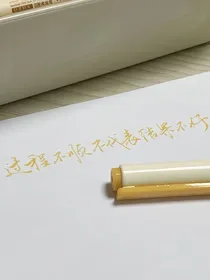 过程不顺不代表结果不行